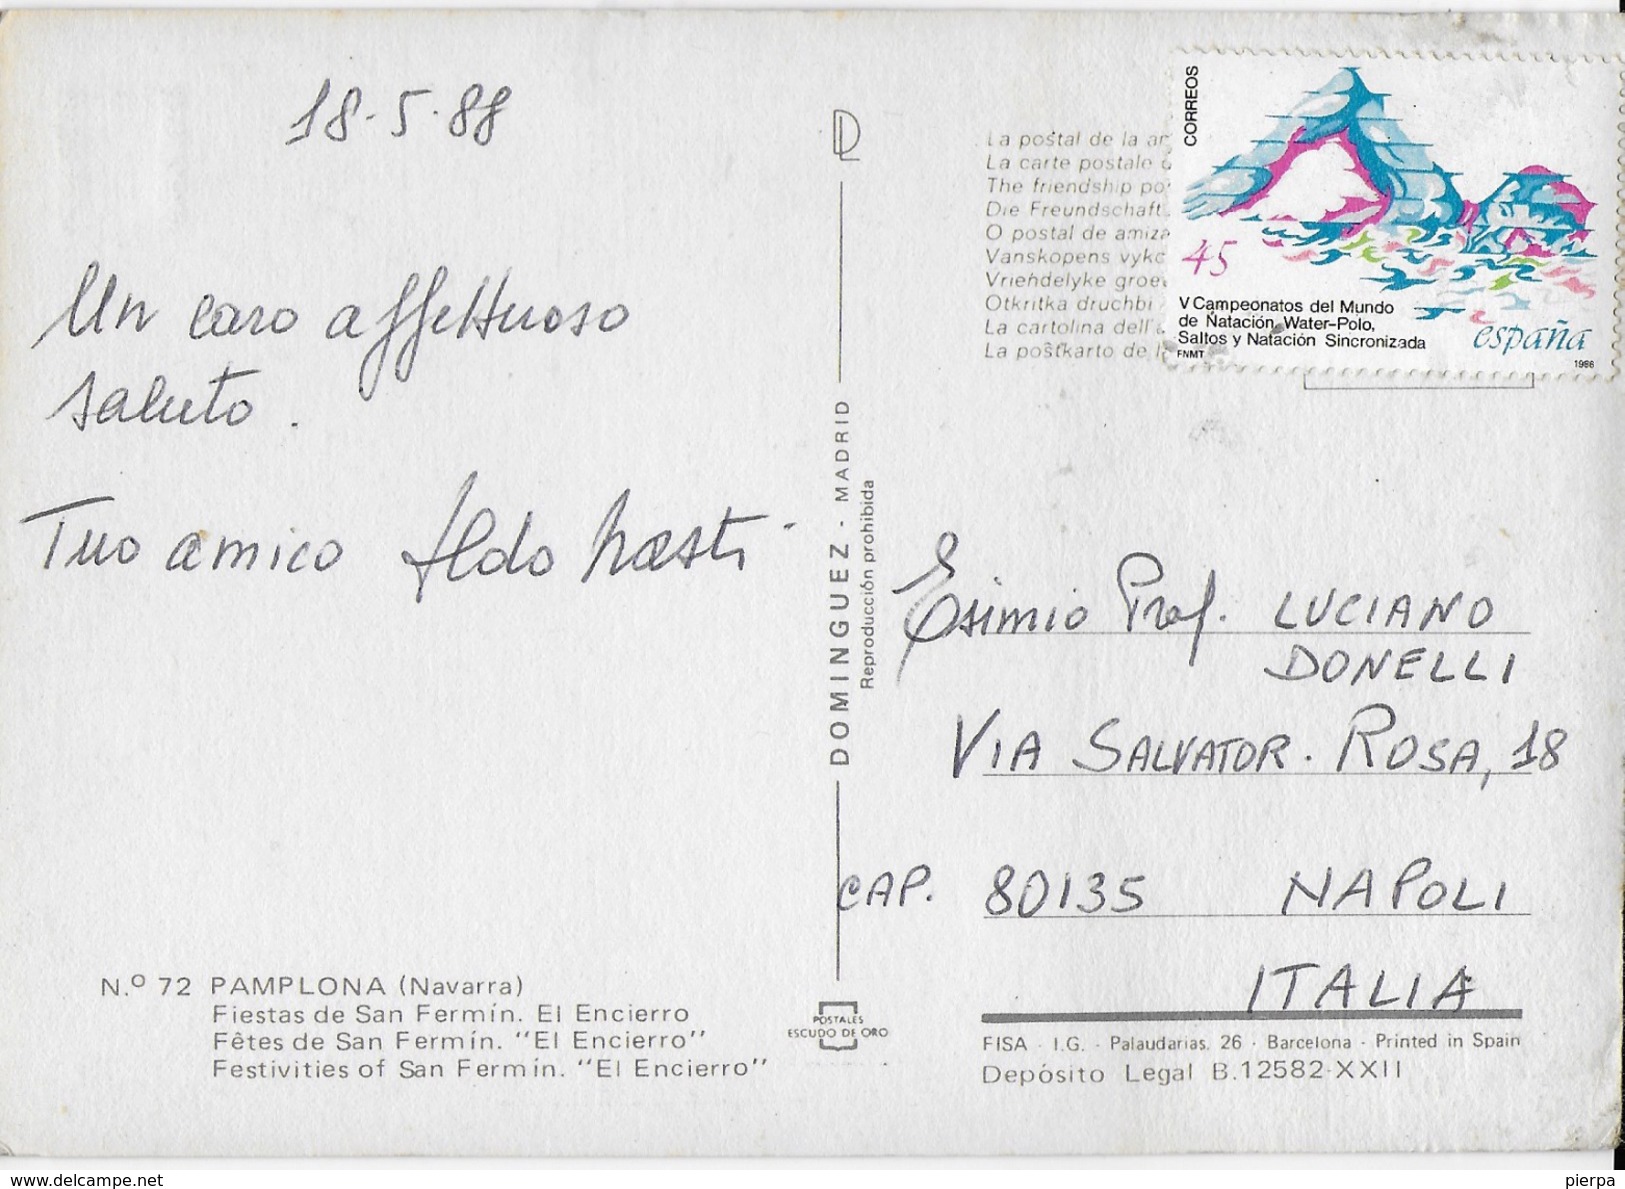 18-5-88
Un caro affettuoso
saluto.
Tuo amico Aldo
N.º 72 PAMPLONA (Navarra)
Fiestas de San Fermín. El Encierro
Fêtes de San Fermín. "El Encierro"
Festivities of San Fermín. "El Encierro"
DL
DOMINGUEZ - MADRID
Reproducción prohibida
POSTALES
ESCUDO DE ORO
La postal de la
La carte postale
The friendship
Die Freundschaft
O postal de
Vanskopens
Vriendelyke
Otkritka druchbi
La cartolina dell'
La postkarto de
CORREOS
45
V Campeonatos del Mundo
de Natación, Water-Polo,
Saltos y Natación Sincronizada
FNMT
españa
1986
Esimio Prof. LUCIANO
DONELLI
VIA SALVATOR. ROSA, 18
CAP. 80135 NAPOLI
ITALIA
FISA - I.G. - Palaudarias, 26 - Barcelona - Printed in Spain
Depósito Legal B.12582-XXII
delcampe.net
pierpa